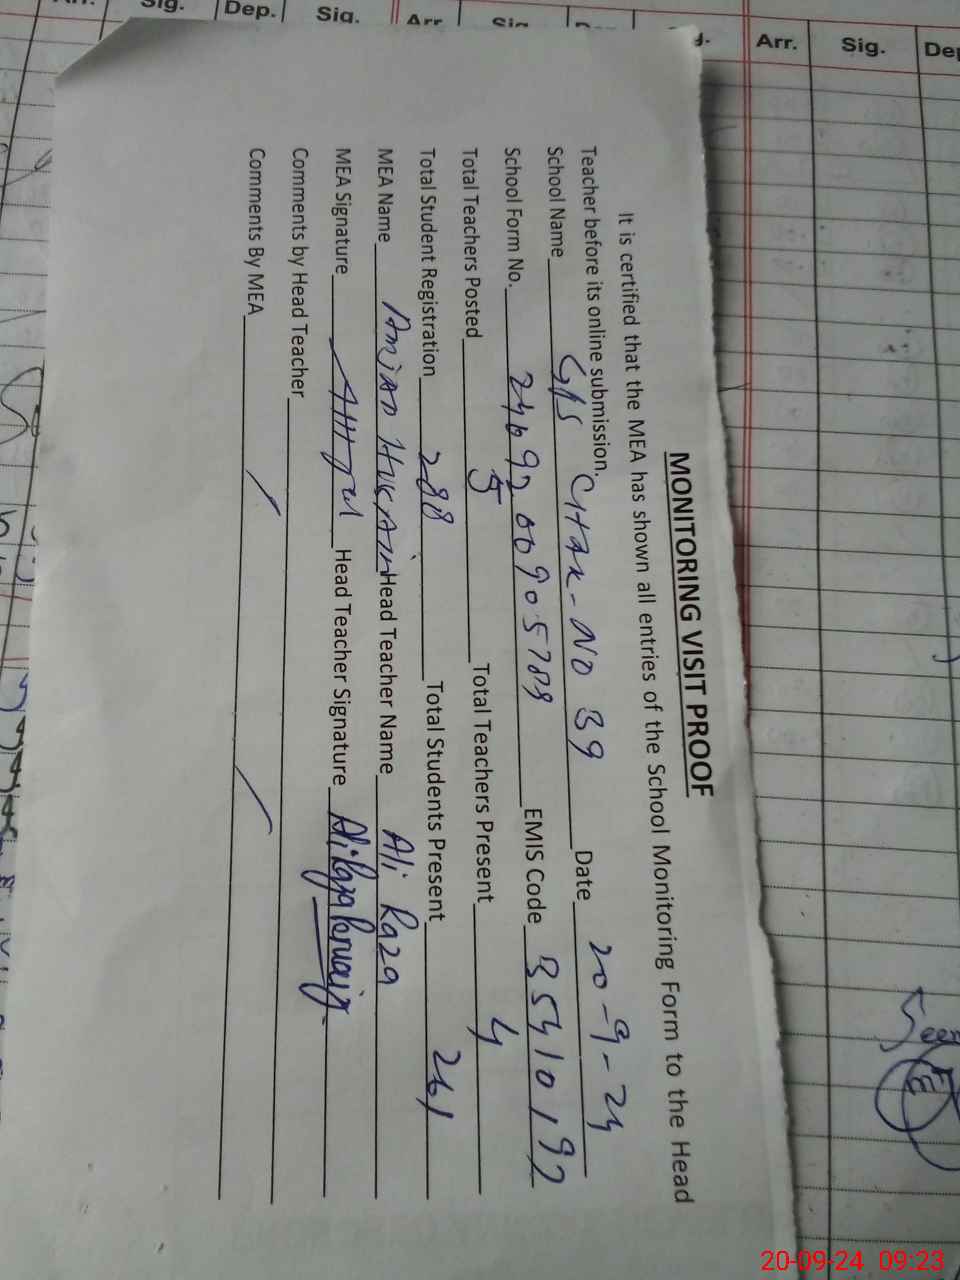 Sig. Dep. Sig. Arr. Sig. Arr. Sig.
MONITORING VISIT PROOF
It is certified that the MEA has shown all entries of the School Monitoring Form to the Head
Teacher before its online submission.
School Name GPS CHAK-NO 39 Date 20-9-24
School Form No. EMIS Code 35410192
Total Teachers Posted 5 Total Teachers Present 4
Total Student Registration 288 Total Students Present 261
MEA Name Amjad Hussain Head Teacher Name Ali Raza
MEA Signature Head Teacher Signature
Comments by Head Teacher
Comments By MEA
Seen
20-09-24 09:23